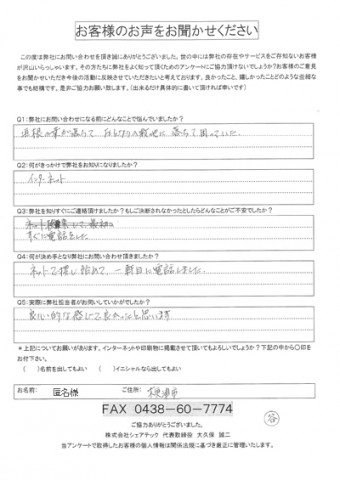 お客様のお声をお聞かせください
この度は弊社にお問い合わせを頂き誠にありがとうございました。世の中には弊社の存在やサービスをご存知ないお客様
が沢山いらっしゃいます。その方たちに弊社をよく知って頂くためのアンケートにご協力頂けないでしょうか?お客様のご意見
をお聞かせいただき今後の活動に反映させていただきたいと考えております。良かったこと、嬉しかったことどのような些細な
事でも結構です。是非ご協力お願い致します。(出来るだけ具体的に書いて頂ければ幸いです)
Q1:弊社にお問い合わせになる前にどんなことで悩んでいましたか?
屋根の 落ちて 敷地に 落ちて困っていた。
Q2:何がきっかけで弊社をお知りになりましたか?
インターネット
Q3:弊社を知りすぐにご連絡頂けましたか?もしご決断されなかったとしたらどんなことがご不安でしたか?
すぐに電話をした
Q4:何が決め手となり弊社にお問い合わせ頂きましたか?
ネットで探し始めて、一番目に電話しました。
Q5:実際に弊社担当者がお伺いしていかがでしたか?
良心的な感じで良かったと思います
*上記についてお願いがあります。インターネットや印刷物に掲載させて頂いてもよろしいでしょうか?下記の中から〇印を
お付け下さい。
( )名前を出しても良い ( )イニシャルなら出してもよい
お名前: 匿名様 ご住所: 市
FAX 0438-60-7774
ご協力ありがとうございました。
株式会社シェアテック 代表取締役 大久保 誠二
当アンケートで取得したお客様の個人情報は関係法規に基づき厳正に管理いたします。